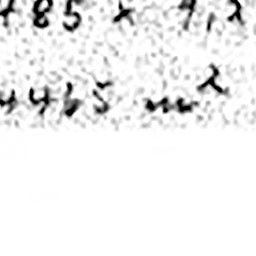 485 × 9,2
4465 m²